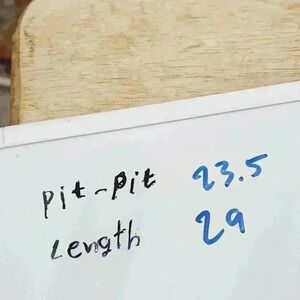 Pit-Pit 23.5
Length 29